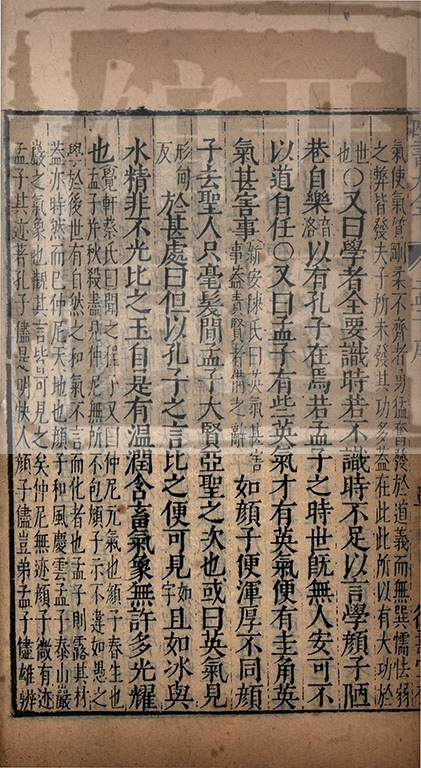 氣使氣質剛柔不齊者勇猛奮發於道義而無巽懦怯弱
之弊皆發夫子所未發其功多蓋在此此所以有大功於
世也○又曰學者全要識時若不識時不足以言學顏子陋
巷自樂音洛以有孔子在焉若孟子之時世既無人安可不
以道自任○又曰孟子有些英氣才有英氣便有圭角英
氣甚害事新安陳氏曰英氣甚害事蓋責賢者備之辭如顏子便渾厚不同顏
子去聖人只毫髮間孟子大賢亞聖之次也或曰英氣見
形甸反於甚處曰但以孔子之言比之便可見如字且如冰與
水精非不光比之玉自是有温潤含蓄氣象無許多光耀
也覺軒蔡氏曰聞之程子又曰仲尼元氣也顏子春生也
孟子并秋殺盡見仲尼無所不包顏子示不違如愚之
學於後世有自然之和氣不言而化者也孟子則露其材
蓋亦時然而已仲尼天地也顏子和風慶雲孟子泰山巖
巖之氣象也觀其言皆可見之矣仲尼無迹顏子微有迹
孟子其迹著孔子儘是明快人顏子儘豈弟孟子儘雄辨